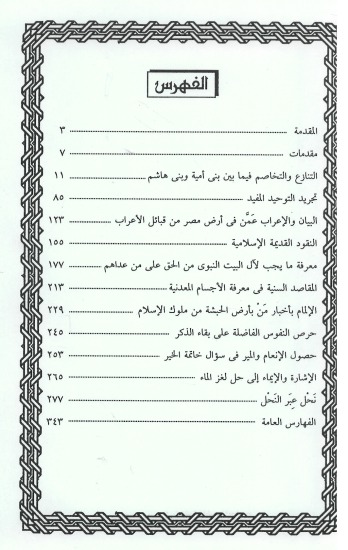 الفهرس
المقدمة ٣
مقدمات ٧
التنازع والتخاصم فيما بين بنى أمية وبنى هاشم ١١
تجريد التوحيد المفيد ٨٥
البيان والإعراب عَمَّن فى أرض مصر من قبائل الأعراب ١٢٣
النقود القديمة الإسلامية ١٥٥
معرفة ما يجب لآل البيت النبوى من الحق على من عداهم ١٧٧
المقاصد السنية فى معرفة الأجسام المعدنية ٢١٣
الإلمام بأخبار مَنْ بأرض الحبشة من ملوك الإسلام ٢٢٩
حرص النفوس الفاضلة على بقاء الذكر ٢٤٥
حصول الإنعام والمير فى سؤال خاتمة الخير ٢٥٣
الإشارة والإيماء إلى حل لغز الماء ٢٦٥
نَحْل عِبَر النَحْل ٢٧٧
الفهارس العامة ٣٤٣